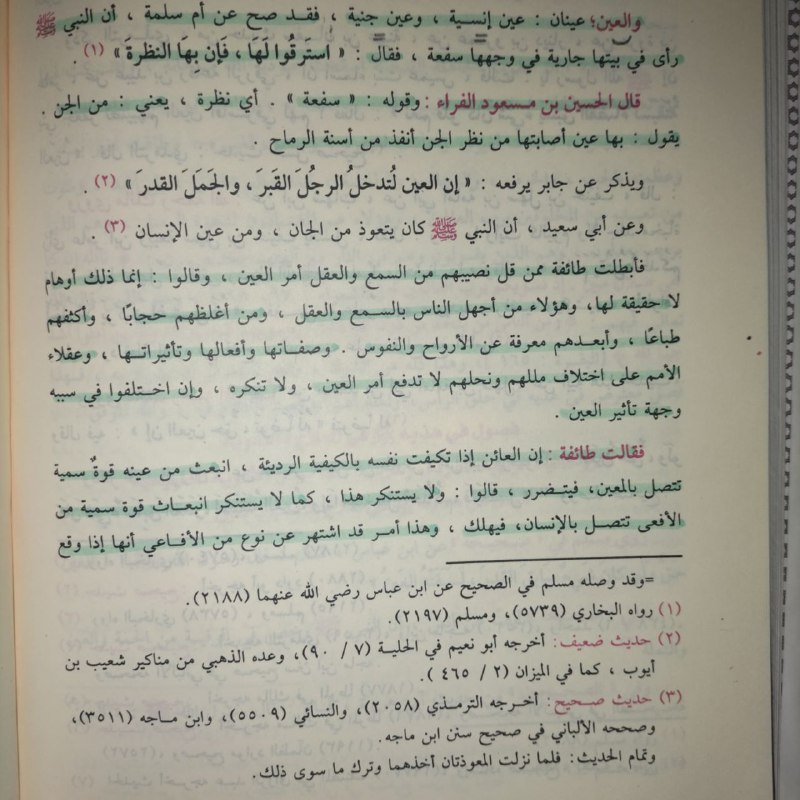 والعين؛ عينان : عين إنسية ، وعين جنية ، فقد صح عن أم سلمة ، أن النبي ﷺ
رأى في بيتها جارية في وجهها سفعة ، فقال : « استَرقُوا لَهَا ، فَإن بِهَا النظرةَ » (١) .
قال الحسين بن مسعود الفراء : وقوله : « سفعة » . أي نظرة ، يعني : من الجن .
يقول : بها عين أصابتها من نظر الجن أنفذ من أسنة الرماح .
ويذكر عن جابر يرفعه : « إن العين لتُدخلُ الرجُلَ القَبرَ ، والجَمَلَ القدرَ » (٢) .
وعن أبي سعيد ، أن النبي ﷺ كان يتعوذ من الجان ، ومن عين الإنسان (٣) .
فأبطلت طائفة ممن قل نصيبهم من السمع والعقل أمر العين ، وقالوا : إنما ذلك أوهام
لا حقيقة لها، وهؤلاء من أجهل الناس بالسمع والعقل ، ومن أغلظهم حجابًا ، وأكثفهم
طباعًا ، وأبعدهم معرفة عن الأرواح والنفوس . وصفاتها وأفعالها وتأثيراتها ، وعقلاء
الأمم على اختلاف مللهم ونحلهم لا تدفع أمر العين ، ولا تنكره ، وإن اختلفوا في سببه
وجهة تأثير العين .
فقالت طائفة : إن العائن إذا تكيفت نفسه بالكيفية الرديئة ، انبعث من عينه قوةٌ سمية
تتصل بالمعين، فيتضرر ، قالوا : ولا يستنكر هذا ، كما لا يستنكر انبعاث قوة سمية من
الأفعى تتصل بالإنسان، فيهلك ، وهذا أمر قد اشتهر عن نوع من الأفاعي أنها إذا وقع
=وقد وصله مسلم في الصحيح عن ابن عباس رضي الله عنهما (٢١٨٨).
(١) رواه البخاري (٥٧٣٩)، ومسلم (٢١٩٧).
(٢) حديث ضعيف: أخرجه أبو نعيم في الحلية (٧ / ٩٠)، وعده الذهبي من مناكير شعيب بن
أيوب ، كما في الميزان (٢ / ٤٦٥ ).
(٣) حديث صحيح: أخرجه الترمذي (٢٠٥٨)، والنسائي (٥٥٠٩)، وابن ماجه (٣٥١١)،
وصححه الألباني في صحيح سنن ابن ماجه.
وتمام الحديث: فلما نزلت المعوذتان أخذهما وترك ما سوى ذلك.